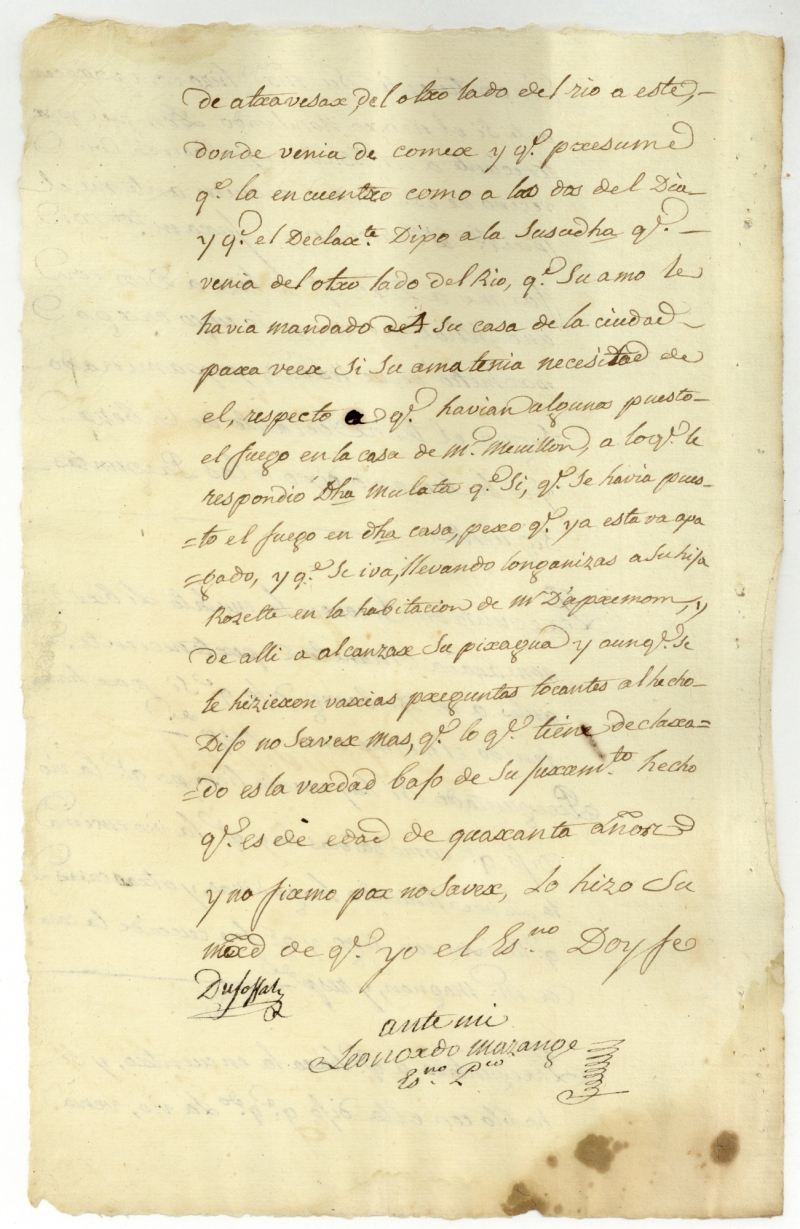 de atravesar, del otro lado del rio a este,
donde venia de comer y q.e presume
q.e la encuentro como a las dos del Dia
y q.e el Declar.te Dijo a la Susudha q.e
venia del otro lado del Rio, q.e Su amo le
havia mandado a Su casa de la ciudad
para veer si Su ama tenia necesidad de
el, respecto a q.e havian algunos puesto
el fuego en la casa de M.r Meuillon, a lo q.e le
respondió Dha mulata q.e Si, q.e Se havia pues-
=to el fuego en dha casa, pero q.e ya estava apa
=gado, y q.e Se iva, llevando longanizas a Su hija
Rozette en la habitacion de Mr D'apremom, y
de alli a alcanzar Su piragua y aunq.e se
le hizieron varias preguntas tocantes al hecho
Dijo no Saver mas, q.e lo q.e tiene declara=
=do es la verdad bajo de Su juram.to hecho
q.e es de edad de quaranta años
y no firmo por no Saver, Lo hizo Su
mrd de q.e yo el Es.no Doy fe
Dufossat
ante mi
Leonardo Mazange
Es.no P.co